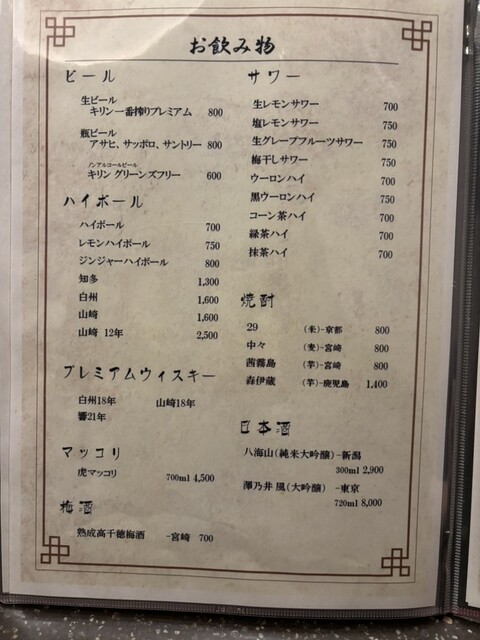 お飲み物
ビール
生ビール
キリン一番搾りプレミアム 800
瓶ビール
アサヒ、サッポロ、サントリー 800
ノンアルコールビール
キリン グリーンズフリー 600
ハイボール
ハイボール 700
レモンハイボール 750
ジンジャーハイボール 800
知多 1,300
白州 1,600
山崎 1,600
山崎 12年 2,500
プレミアムウィスキー
白州18年 山崎18年
響21年
マッコリ
虎マッコリ 700ml 4,500
梅酒
熟成高千穂梅酒 -宮崎 700
サワー
生レモンサワー 700
塩レモンサワー 750
生グレープフルーツサワー 750
梅干しサワー 750
ウーロンハイ 700
黒ウーロンハイ 750
コーン茶ハイ 700
緑茶ハイ 700
抹茶ハイ 700
焼酎
29 (米)-京都 800
中々 (麦)-宮崎 800
茜霧島 (芋)-宮崎 800
森伊蔵 (芋)-鹿児島 1,400
日本酒
八海山(純米大吟醸)-新潟
300ml 2,900
澤乃井 凰(大吟醸) -東京
720ml 8,000